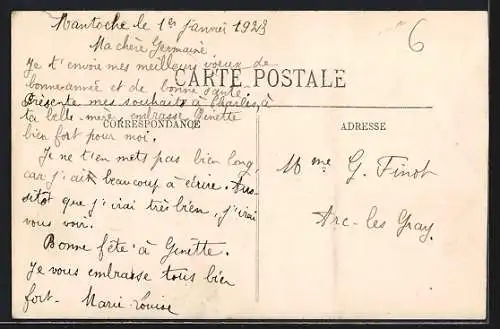 Mantoche le 1er Janvier 1923
Ma chère Germaine
Je t'envoie mes meilleurs voeux de
bonne année et de bonne santé.
CARTE POSTALE
Présente mes souhaits à Charles, à
ta belle-mère embrasse Ginette
bien fort pour moi.
CORRESPONDANCE
Je ne t'en mets pas bien long,
car j'ai beaucoup à écrire. Aus-
sitôt que j'irai très bien, j'irai
vous voir.
Bonne fête à Ginette.
Je vous embrasse tous bien
fort- Marie-Louise
6
ADRESSE
Mme G. Finot
Arc-les Gray.